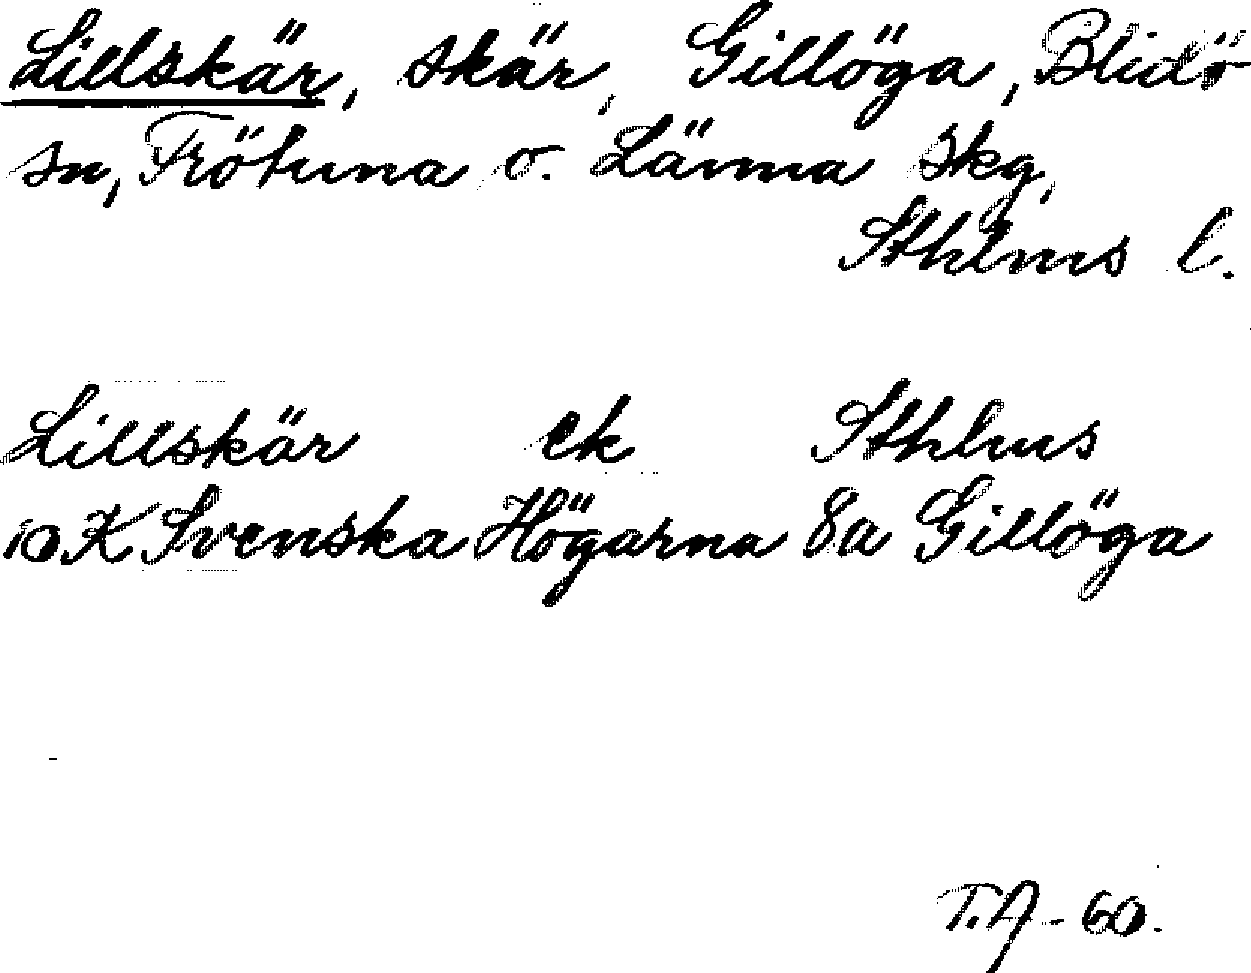 Lillskär, skär, Gillöga, Blidö
sn, Frötuna o. Länna skg,
Sthlms l.
Lillskär ek Sthlms
10 K Svenska Högarna 8a Gillöga
T.A-60.